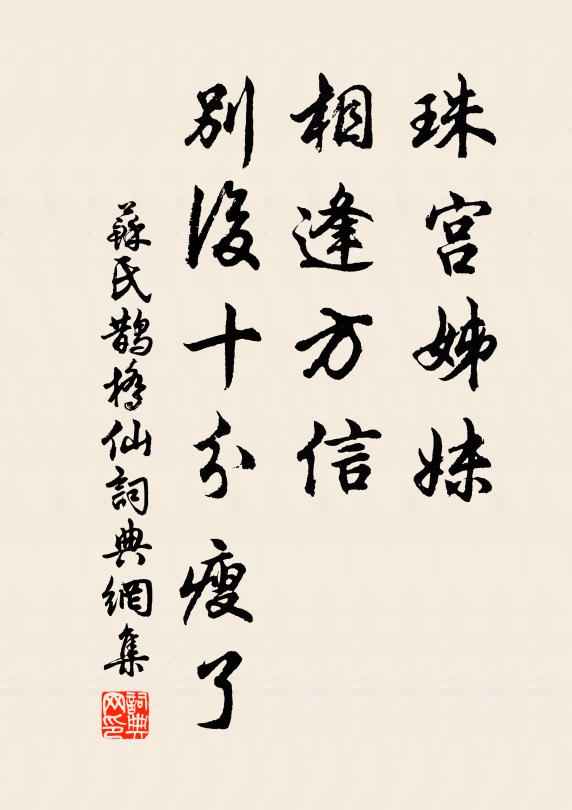 珠宫姊妹
相逢方信
別後十分瘦了
蘇氏鵲橋仙詞典網集
詞典网印